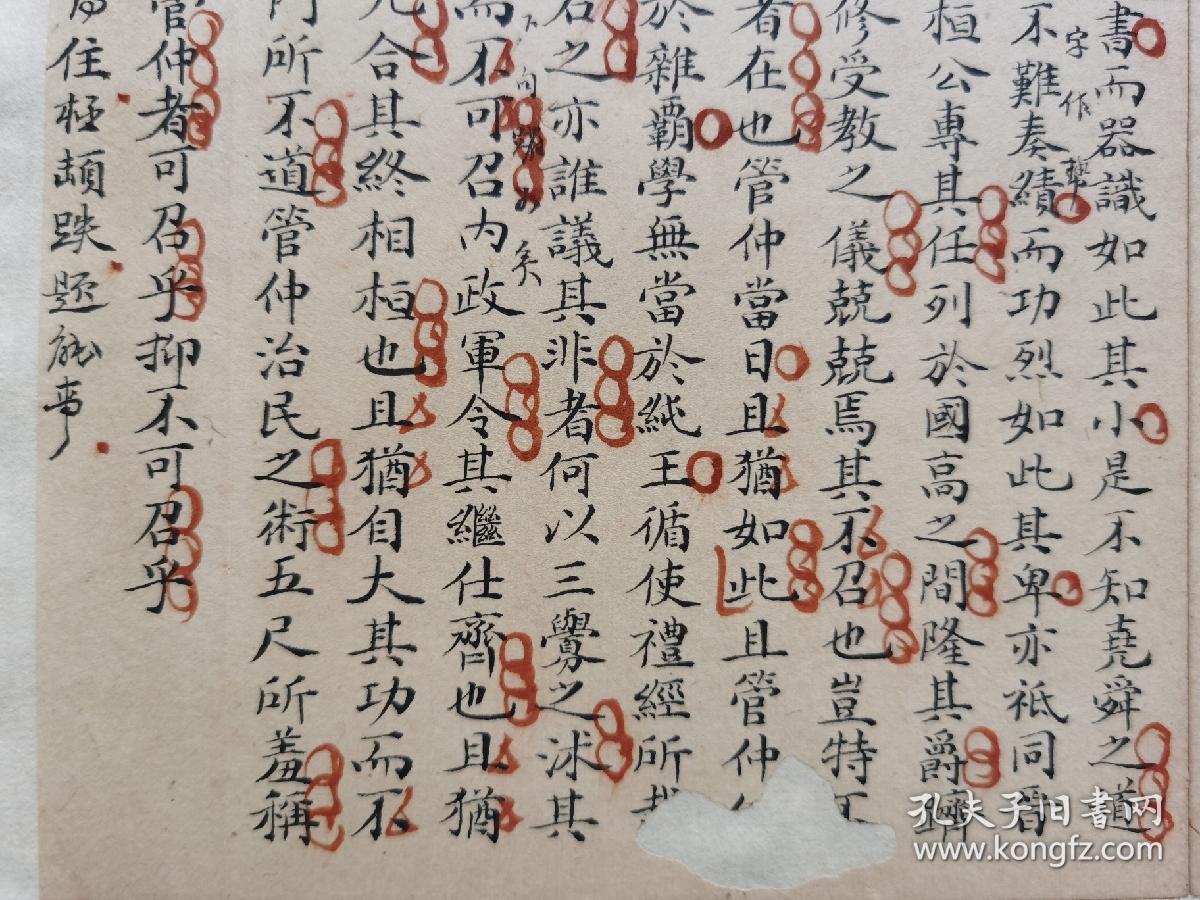 書而器識如此其小是不知堯舜之道
字作
不難奏績而功烈如此其卑亦祇同晉
桓公專其任列於國高之間隆其爵躋
修受教之儀兢兢焉其不召也豈特不
者在也管仲當日且猶如此且管仲
於雜霸學無當於純王循使禮經所載
君之亦誰議其非者何以三釁之沐其
下句 矣
而不可召內政軍令其繼仕齊也且猶
九合其終相桓也且猶自大其功而不
門所不道管仲治民之術五尺所羞稱
管仲者可召乎抑不可召乎
住極頡跌題
孔夫子旧书网
www.kongfz.com